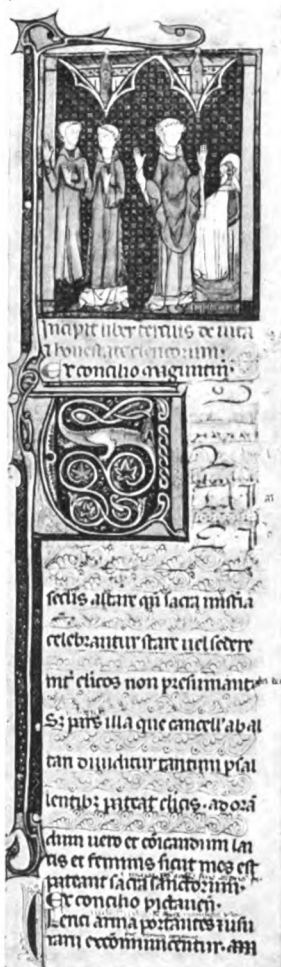 Incipit liber tercius de uita
& honestate clericorum.
Ex concilio maguntin.
seclis astare qn sacra misteria
celebrantur stare uel sedere
int clicos non presumant.
Sz pars illa que cancell ab al
tari diuiditur tantum psal
lentibz pateat clicis. ad oran
dum uero et coicandum lai
cis et feminis sicut mos est
pateant sacra sanctorum.
Ex concilio pictauen.
lerici arma portantes & usu
rarii excommunicentur.